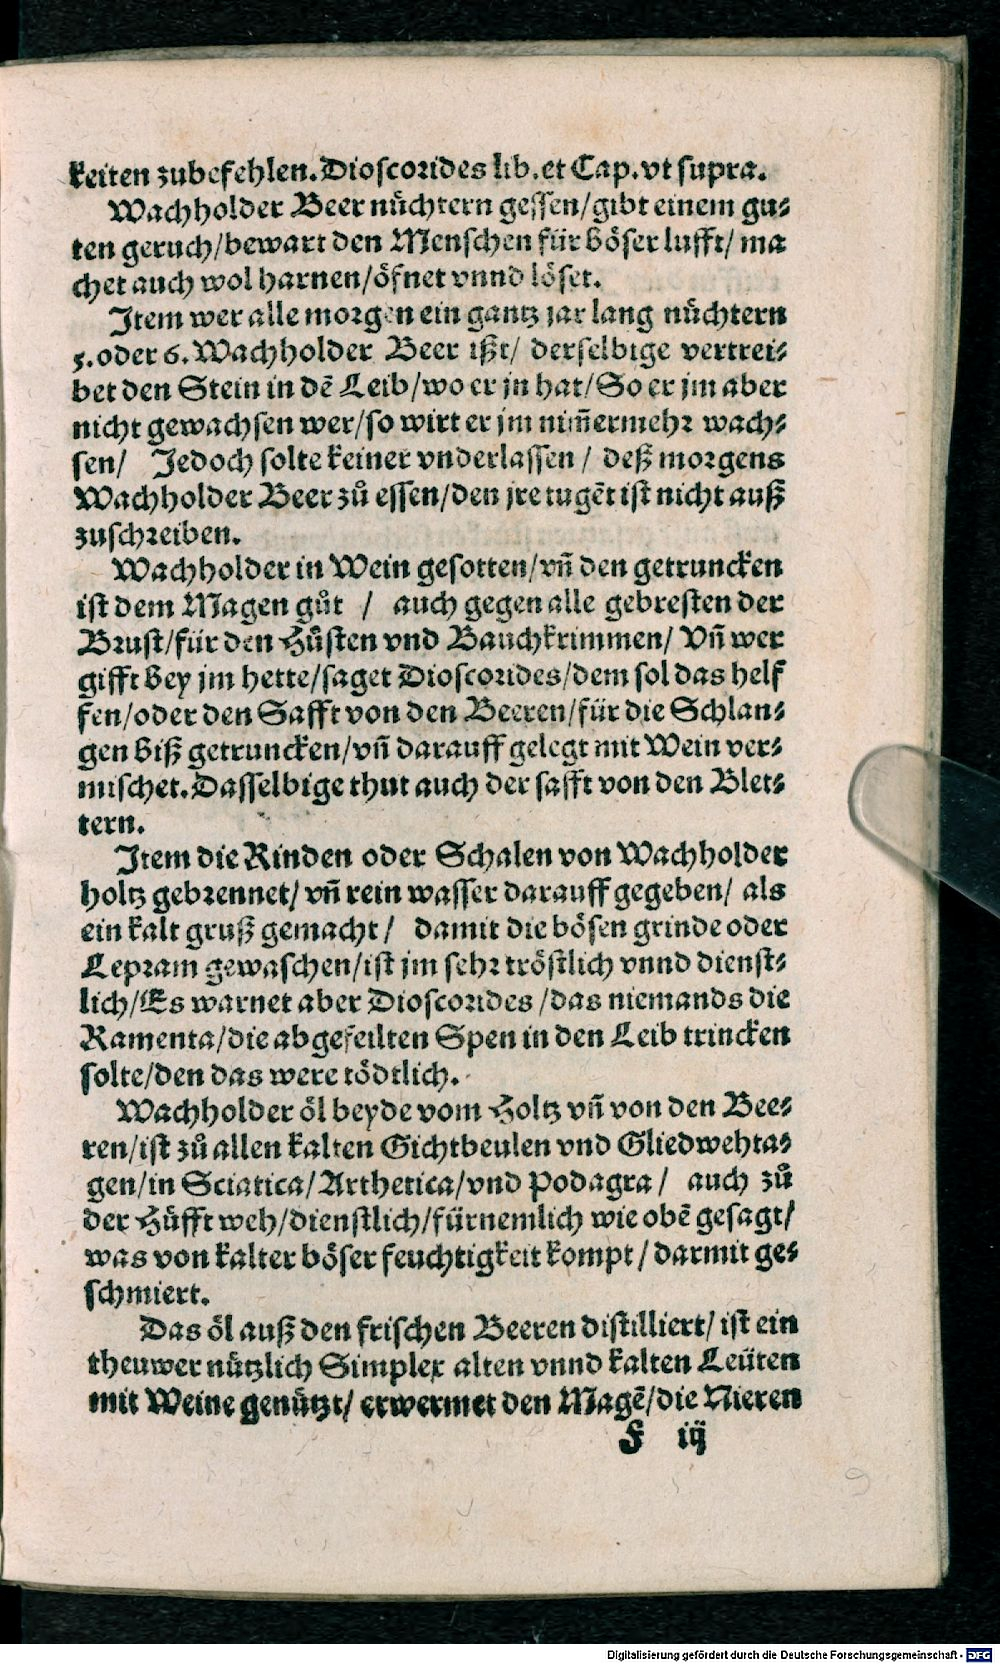 keiten zubefehlen. Dioscorides lib. et Cap. vt supra.
Wachholder Beer nuͤchtern gessen/gibt einem gu⸗
ten geruch/bewart den Menschen für boͤser lufft/ ma
chet auch wol harnen/oͤfnet vnnd loͤset.
Item wer alle morgen ein gantz jar lang nuͤchtern
5. oder 6. Wachholder Beer ißt/ derselbige vertrei⸗
bet den Stein in dē Leib/wo er jn hat/So er jm aber
nicht gewachsen wer/so wirt er jm nim̄ermehr wach⸗
sen/ Jedoch solte keiner vnderlassen/ deß morgens
Wachholder Beer zuͦ essen/den jre tugēt ist nicht auß
zuschreiben.
Wachholder in Wein gesotten/vn̄ den getruncken
ist dem Magen guͦt / auch gegen alle gebresten der
Brust/für den Huͦsten vnd Bauchkrimmen/ Vn̄ wer
gifft bey jm hette/saget Dioscorides/dem sol das helf
fen/oder den Safft von den Beeren/für die Schlan⸗
gen biß getruncken/vn̄ darauff gelegt mit Wein ver⸗
mischet. Dasselbige thut auch der safft von den Blet⸗
tern.
Item die Rinden oder Schalen von Wachholder
holtz gebrennet/ vn̄ rein wasser darauff gegeben/ als
ein kalt gruß gemacht/ damit die boͤsen grinde oder
Lepram gewaschen/ist jm sehr troͤstlich vnnd dienst⸗
lich/Es warnet aber Dioscorides/das niemands die
Ramenta/die abgefeilten Spen in den Leib trincken
solte/den das were toͤdtlich.
Wachholder oͤl beyde vom Holtz vn̄ von den Bee⸗
ren/ist zuͦ allen kalten Gichtbeulen vnd Gliedwehta⸗
gen/in Sciatica/Arthetica/vnd Podagra/ auch zuͦ
der Huͤfft weh/dienstlich/fürnemlich wie obē gesagt/
was von kalter boͤser feuchtigkeit kompt/darmit ge⸗
schmiert.
Das oͤl auß den frischen Beeren distilliert/ ist ein
theuwer nuͤtzlich Simplex alten vnnd kalten Leüten
mit Weine genuͤtzt/ erwermet den Magē/die Nieren
F iij
Digitalisierung gefördert durch die Deutsche Forschungsgemeinschaft - DFG